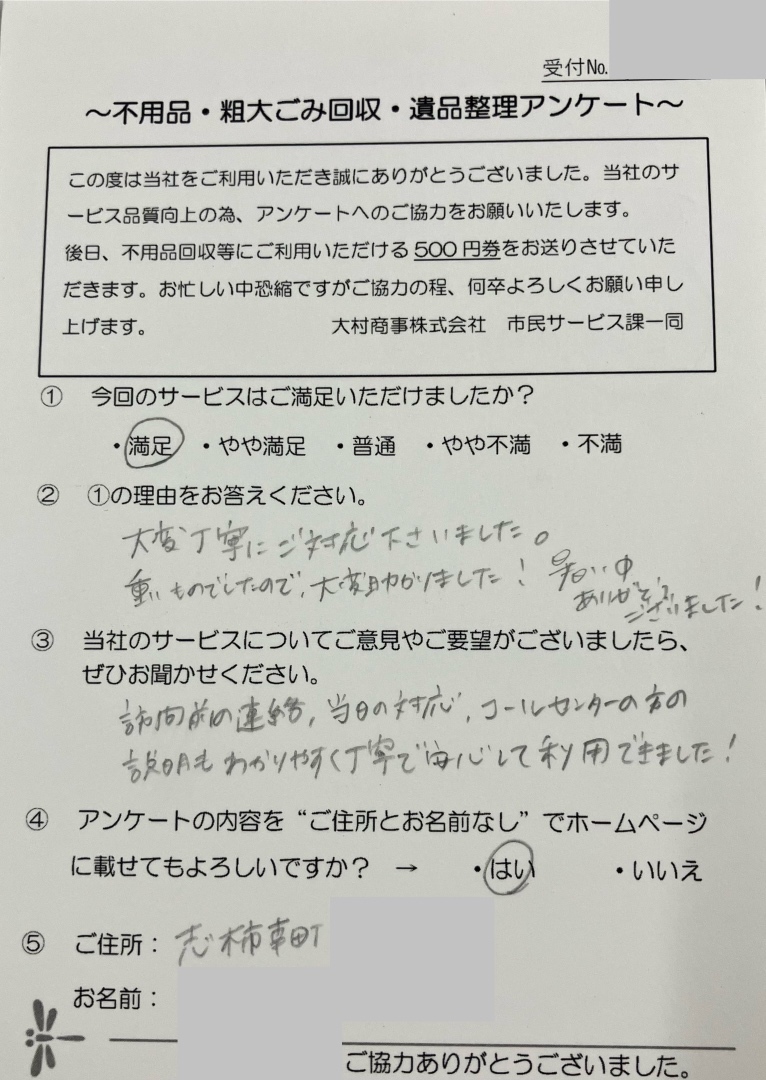 受付No.
～不用品・粗大ごみ回収・遺品整理アンケート～
この度は当社をご利用いただき誠にありがとうございました。当社のサ
ービス品質向上の為、アンケートへのご協力をお願いいたします。
後日、不用品回収等にご利用いただける500円券をお送りさせていた
だきます。お忙しい中恐縮ですがご協力の程、何卒よろしくお願い申し
上げます。 大村商事株式会社 市民サービス課一同
① 今回のサービスはご満足いただけましたか？
・満足 ・やや満足 ・普通 ・やや不満 ・不満
② ①の理由をお答えください。
大変丁寧にご対応下さいました。
重いものでしたので、大変助かりました！ 暑い中
ありがとう
ございました！
③ 当社のサービスについてご意見やご要望がございましたら、
ぜひお聞かせください。
訪問前の連絡、当日の対応、コールセンターの方の
説明もわかりやすく丁寧で安心して利用できました！
④ アンケートの内容を“ご住所とお名前なし”でホームページ
に載せてもよろしいですか？ → ・はい ・いいえ
⑤ ご住所： 志木市幸町
お名前：
ご協力ありがとうございました。